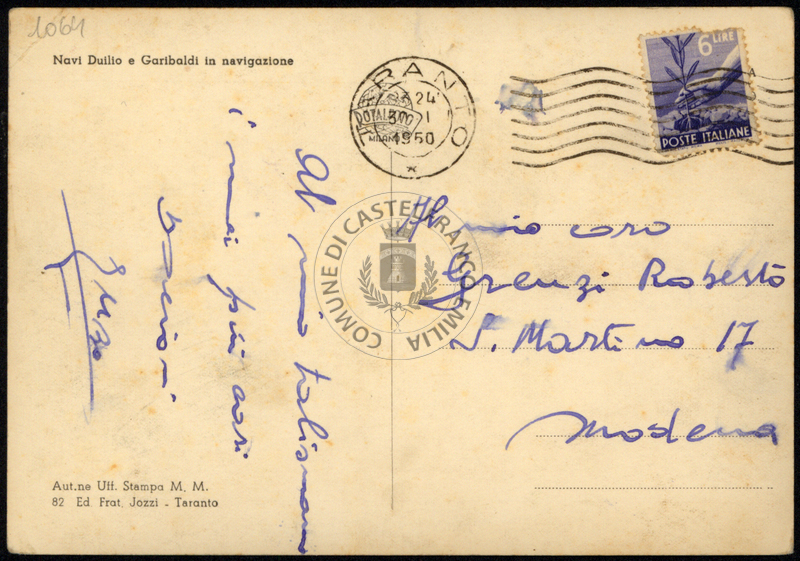 1064
Navi Duilio e Garibaldi in navigazione
TARANTO
24
30 1
1950
MILANO
6 LIRE
POSTE ITALIANE
Al mio talismano
i miei più cari
bacioni
Al mio caro
Lorenzi Roberto
S. Martino 17
Modena
COMUNE DI CASTELFRANCO EMILIA
Aut.ne Uff. Stampa M. M.
82 Ed. Frat. Jozzi - Taranto